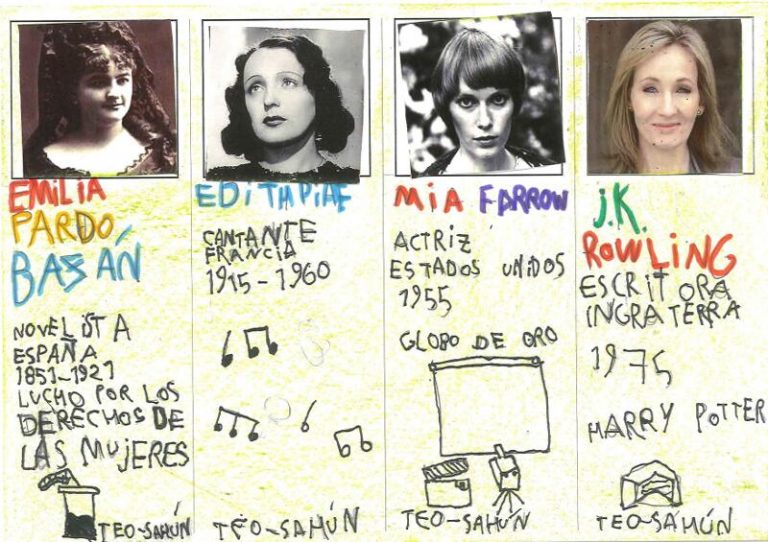 EMILIA
PARDO
BASÁN
NOVELISTA
ESPAÑA
1851-1921
LUCHO POR LOS
DERECHOS DE
LAS MUJERES
TEO-SAHÚN
EDITH PIAF
CANTANTE
FRANCIA
1915-1960
TEO-SAHÚN
MIA FARROW
ACTRIZ
ESTADOS UNIDOS
1955
GLOBO DE ORO
TEO-SAHÚN
J.K.
ROWLING
ESCRITORA
INGRATERRA
1975
HARRY POTTER
TEO-SAHÚN